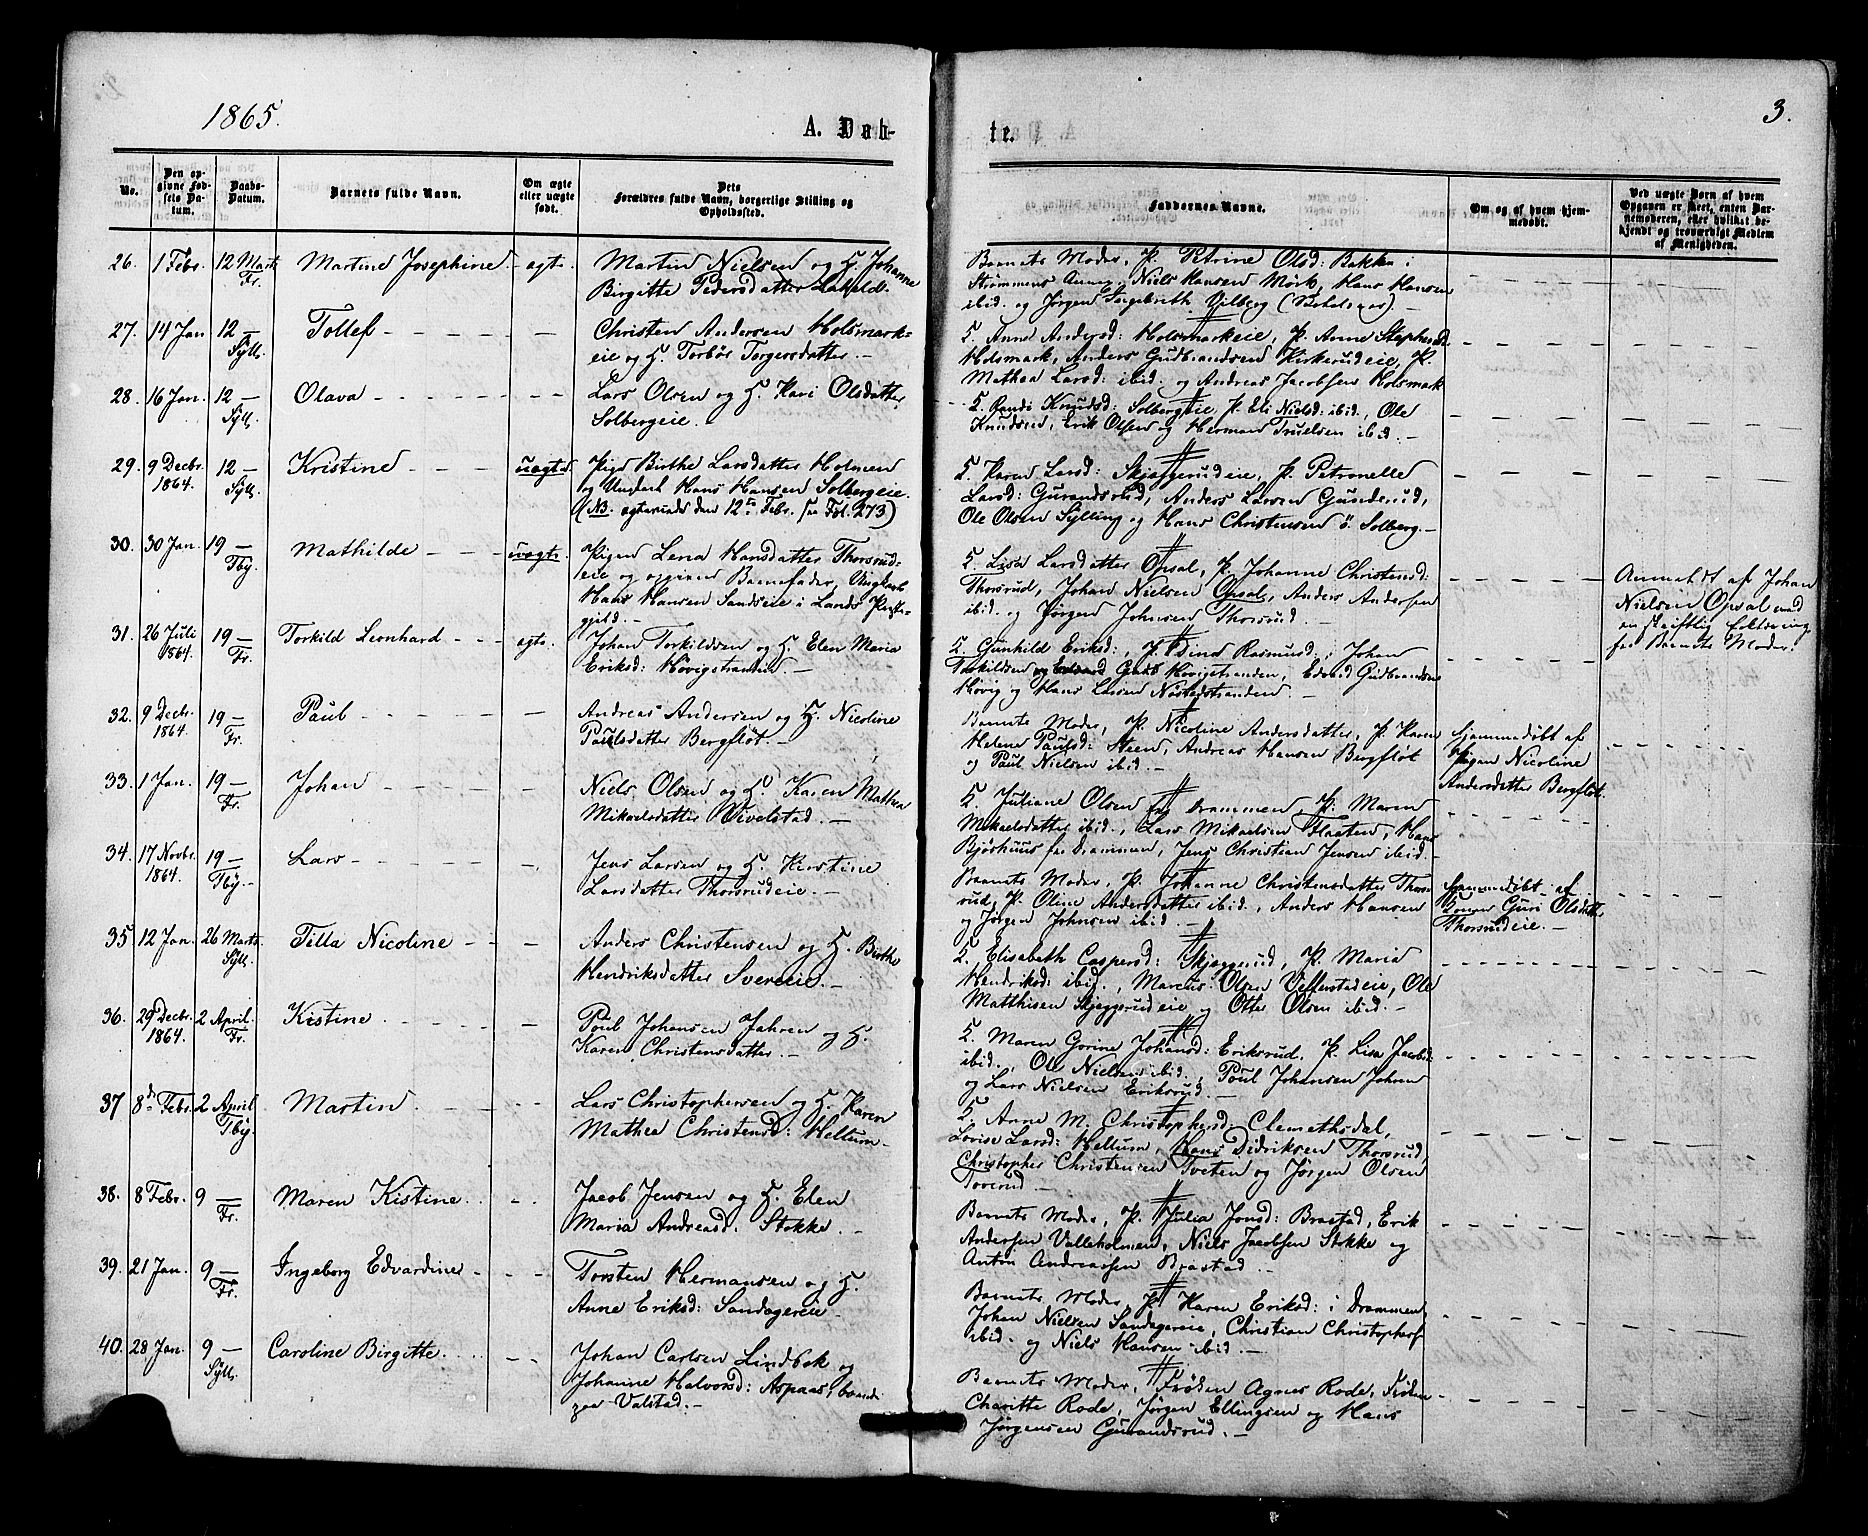 1865.
A. Døb-
te.
3.
No.
Den op-
givne Fød-
sels Da-
tum.
Daabs-
Datum.
Barnets fulde Navn.
Om ægte
eller uægte
født.
Dets
Forældres fulde Navn, borgerlige Stilling og
Opholdssted.
Faddernes Navne.
Om og af hvem hjem-
medøbt.
Ved uægte Børn af hvem
Opgaven er skeet, enten Bar-
nemoderen, eller hvilket be-
kjendt og troværdigt Medlem
af Menigheden.
26. 1 Febr. 12 Marts Fr. Martine Josephine - ægte.
Martin Nielsen og H. Johanne
Birgitte Pedersdatter
Barnets Moder, P. Petrine Olsd: Bakke i
Strømmens Annex, Niels Hansen Mörk, Hans Hansen
ibid. og Jörgen Vilberg
27. 14 Jan. 12 - Sÿll. Tollef - - - -
Christen Andersen Holsmark-
eie og H. Torbör Torgersdatter. -
F. Anne Andersd: Holsmarkeie, P. Anne
Holsmark, Anders Gudbrandsen Kirkerudeie, P.
Mathea Larsd: ibid. og Andreas Jacobsen Holsmark
28. 16 Jan. 12 - Sÿll. Olava - - - -
Lars Olsen og H. Kari Olsdatter
Solbergeie. -
F. Randi Knudsd: Solbergeie, P. Eli Nielsd: ibid., Ole
Knudsen, Erik Olsen og Herman Truelsen ibid. -
29. 9 Decbr. 1864. 12 - Sÿll. Kristine - - - uægte.
Pige Birthe Larsdatter Holmen
og Ungkarl Hans Hansen Solbergeie.
(NB. ægteviede den 12te Febr. se Fol. 273)
F. Karen Larsd: Skjæggerudeie, P. Petronelle
Larsd: Gurandsrud, Anders Larsen Gunderud,
Ole Olsen Sylling og Hans Christensen ö. Solberg. -
30. 30 Jan. 19 - Tby. Mathilde - - - uægte.
Pigen Lena Hansdatter Thorsrud-
eie og opgiven Barnefader, Ungkarl
Hans Hansen Sandseie i Lands Præste-
gjeld. -
F. Lisa Larsdatter Opsal, P. Johanne Christensd:
Thorsrud, Johan Nielsen Opsal, Anders Andersen
ibid. og Jörgen Johnsen Thorsrud. -
Anmeldt af Johan
Nielsen Opsal med
en skriftlig Erklæring
fra Barnets Moder.
31. 26 Juli 1864. 19 - Fr. Torkild Leonhard - - - ægte.
Johan Torkildsen og H. Elen Maria
Eriksd: Hövigstranden -
F. Gunhild Eriksd:, P. Dina Rasmusd:, Johan
Torkildsen Hövigstranden, Edvard Gudbrandsen
Hövig og Hans Larsen Nöstedstranden -
32. 9 Decbr. 1864. 19 - Fr. Paul - - - -
Andreas Andersen og H. Nicoline
Paulsdatter Bergflöt. -
Barnets Moder, P. Nicoline Andersdatter, P. Karen
Helene Paulsd: Steen, Andreas Hansen Bergflöt
og Paul Nielsen ibid. -
Hjemmedöbt af
Pigen Nicoline
Andersdatter Bergflöt.
33. 1 Jan. 19 - Fr. Johan - - - -
Niels Olsen og H. Karen Mathea
Mikaelsdatter Vivelstad. -
F. Juliane Olsen fra Drammen, P. Maren
Mikaelsdatter ibid., Lars Mikaelsen Flaaten, Hans
Björhuus fra Drammen, Jens Christian Jensen ibid. -
34. 17 Novbr. 1864. 19 - Tby. - Lars - - - -
Jens Larsen og H. Kirstine
Larsdatter Thorsrudeie. -
Barnets Moder, P. Johanne Christensdatter Thors-
rud, P. Oline Andersdatter ibid., Anders Hansen
og Jörgen Johnsen ibid. -
Hjemmedöbt af
Konen Guri Olsdatter
Thorsrudeie. -
35. 12 Jan. 26 Marts. Sÿll. Tilla Nicoline - - -
Anders Christensen og H. Birthe
Hendriksdatter Svereeie. -
F. Elisabeth Caspersd: Skjæggerud, P. Maria
Hendriksd: ibid., Marcus Olsen Vefferstadeie, Ole
Matthisen Skjæggerudeie og Otter Olsen ibid. -
36. 29 Decbr. 1864. 2 April. Fr. Kistine - - - -
Poul Johansen Jahren og H.
Karen Christensdatter. -
F. Maren Gorine Johansd: Eriksrud, P. Lisa Jacobsd:
ibid., Ole Nielsen ibid., Poul Johansen Jahren
og Lars Nielsen Eriksrud. -
37 8de Febr. 2 April Tby. Martin. - - - -
Lars Christophersen og H. Karen
Mathea Christensd: Hellum -
F. Anne M. Christophersd: Clemethsdal,
Lovise Larsd: Hellum, Hans Didriksen Thorsrud,
Christopher Christensen Tveten og Jörgen Olsen
Toverud -
38. 8 Febr. 9 - Fr. Maren Kistine. - -
Jacob Jensen og H. Elen
Maria Andreasd. Stokke. -
Barnets Moder, P. Julia Jonsd: Brastad, Erik
Andersen Valleholmen, Niels Jacobsen Stokke og
Anton Andreassen Brastad. -
39. 21 Jan. 9 - Fr. Ingeborg Edvardine - - -
Torsten Hermansen og H.
Anne Eriksd: Sandagereie -
Barnets Moder, P. Karen Eriksd: i Drammen,
Johan Nielsen Sandagereie, Christian Christophers.
ibid. og Niels Hansen ibid. -
40. 28 Jan. 9 - Sÿll. Caroline Birgitte. - -
Johan Carlsen Lindbek og
Johanne Halvorsd: Aspaas, boende
paa Valstad. -
Barnets Moder, Fröken Agnes Rode, Fröken
Charitte Rode, Jörgen Ellingsen og Hans
Jörgensen Gurandsrud. -